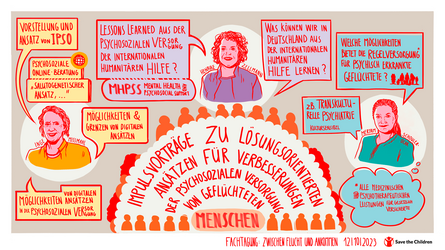 VORSTELLUNG UND
ANSATZ VON IPSO
PSYCHOSOZIALE
ONLINE-BERATUNG
"SALUTOGENETISCHER
ANSATZ, ..."
MÖGLICHKEITEN &
GRENZEN VON DIGITALEN
ANSÄTZEN
VON DIGITALEN
MÖGLICHKEITEN ANSÄTZEN
IN DER PSYCHOSOZIALEN VERSORGUNG
LESSONS LEARNED AUS DER
PSYCHOSOZIALEN VERSORGUNG
DER INTERNATIONALEN
HUMANITÄREN HILFE?
MHPSS MENTAL HEALTH &
PSYCHOSOCIAL SUPPORT
WAS KÖNNEN WIR IN
DEUTSCHLAND AUS
DER INTERNATIONALEN
HUMANITÄREN
HILFE LERNEN?
WELCHE MÖGLICHKEITEN
BIETET DIE REGELVERSORGUNG
FÜR PSYCHISCH ERKRANKTE
GEFLÜCHTETE?
ZB. TRANSKULTU-
RELLE PSYCHIATRIE
* ALLE MEDIZINISCHEN
PSYCHOTHERAPEUTISCHEN
LEISTUNGEN FÜR GESETZLICH
VERSICHERTE
IMPULSVORTRÄGE ZU LÖSUNGSORIENTIERTEN
ANSÄTZEN FÜR VERBESSERUNGEN
DER PSYCHOSOZIALEN VERSORGUNG
VON GEFLÜCHTETEN
MENSCHEN
FACHTAGUNG: ZWISCHEN FLUCHT UND ANKOMMEN 12|10|2023
Save the Children